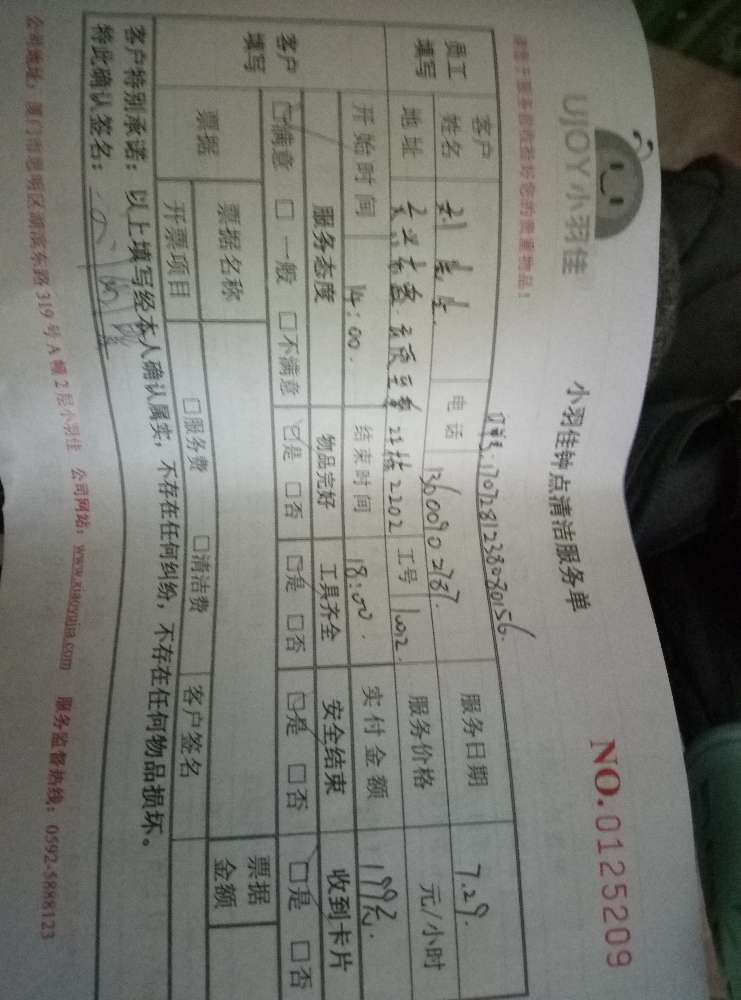 UJOY小羽佳
小羽佳钟点清洁服务单
NO.0125209
请您于服务前收捡好您的贵重物品!
订单号:1707281238080156.
员工填写
客户姓名
电话 13600902787.
服务日期 7.29.
地址
22栋2202
工号 1002.
服务价格 元/小时
开始时间 14:00.
结束时间 18:00.
实付金额 199元.
客户填写
服务态度 物品完好 工具齐全 安全结束 收到卡片
☑满意 □一般 □不满意 ☑是 □否 ☑是 □否 ☑是 □否 ☑是 □否
票据
票据名称
票据金额
开票项目 □服务费 □清洁费 客户签名
客户特别承诺:以上填写经本人确认属实,不存在任何纠纷,不存在任何物品损坏。
特此确认签名:
公司地址:厦门市思明区湖滨东路319号A幢2层小羽佳 公司网站:www.xiaoyujia.com 服务监督热线:0592-5888123